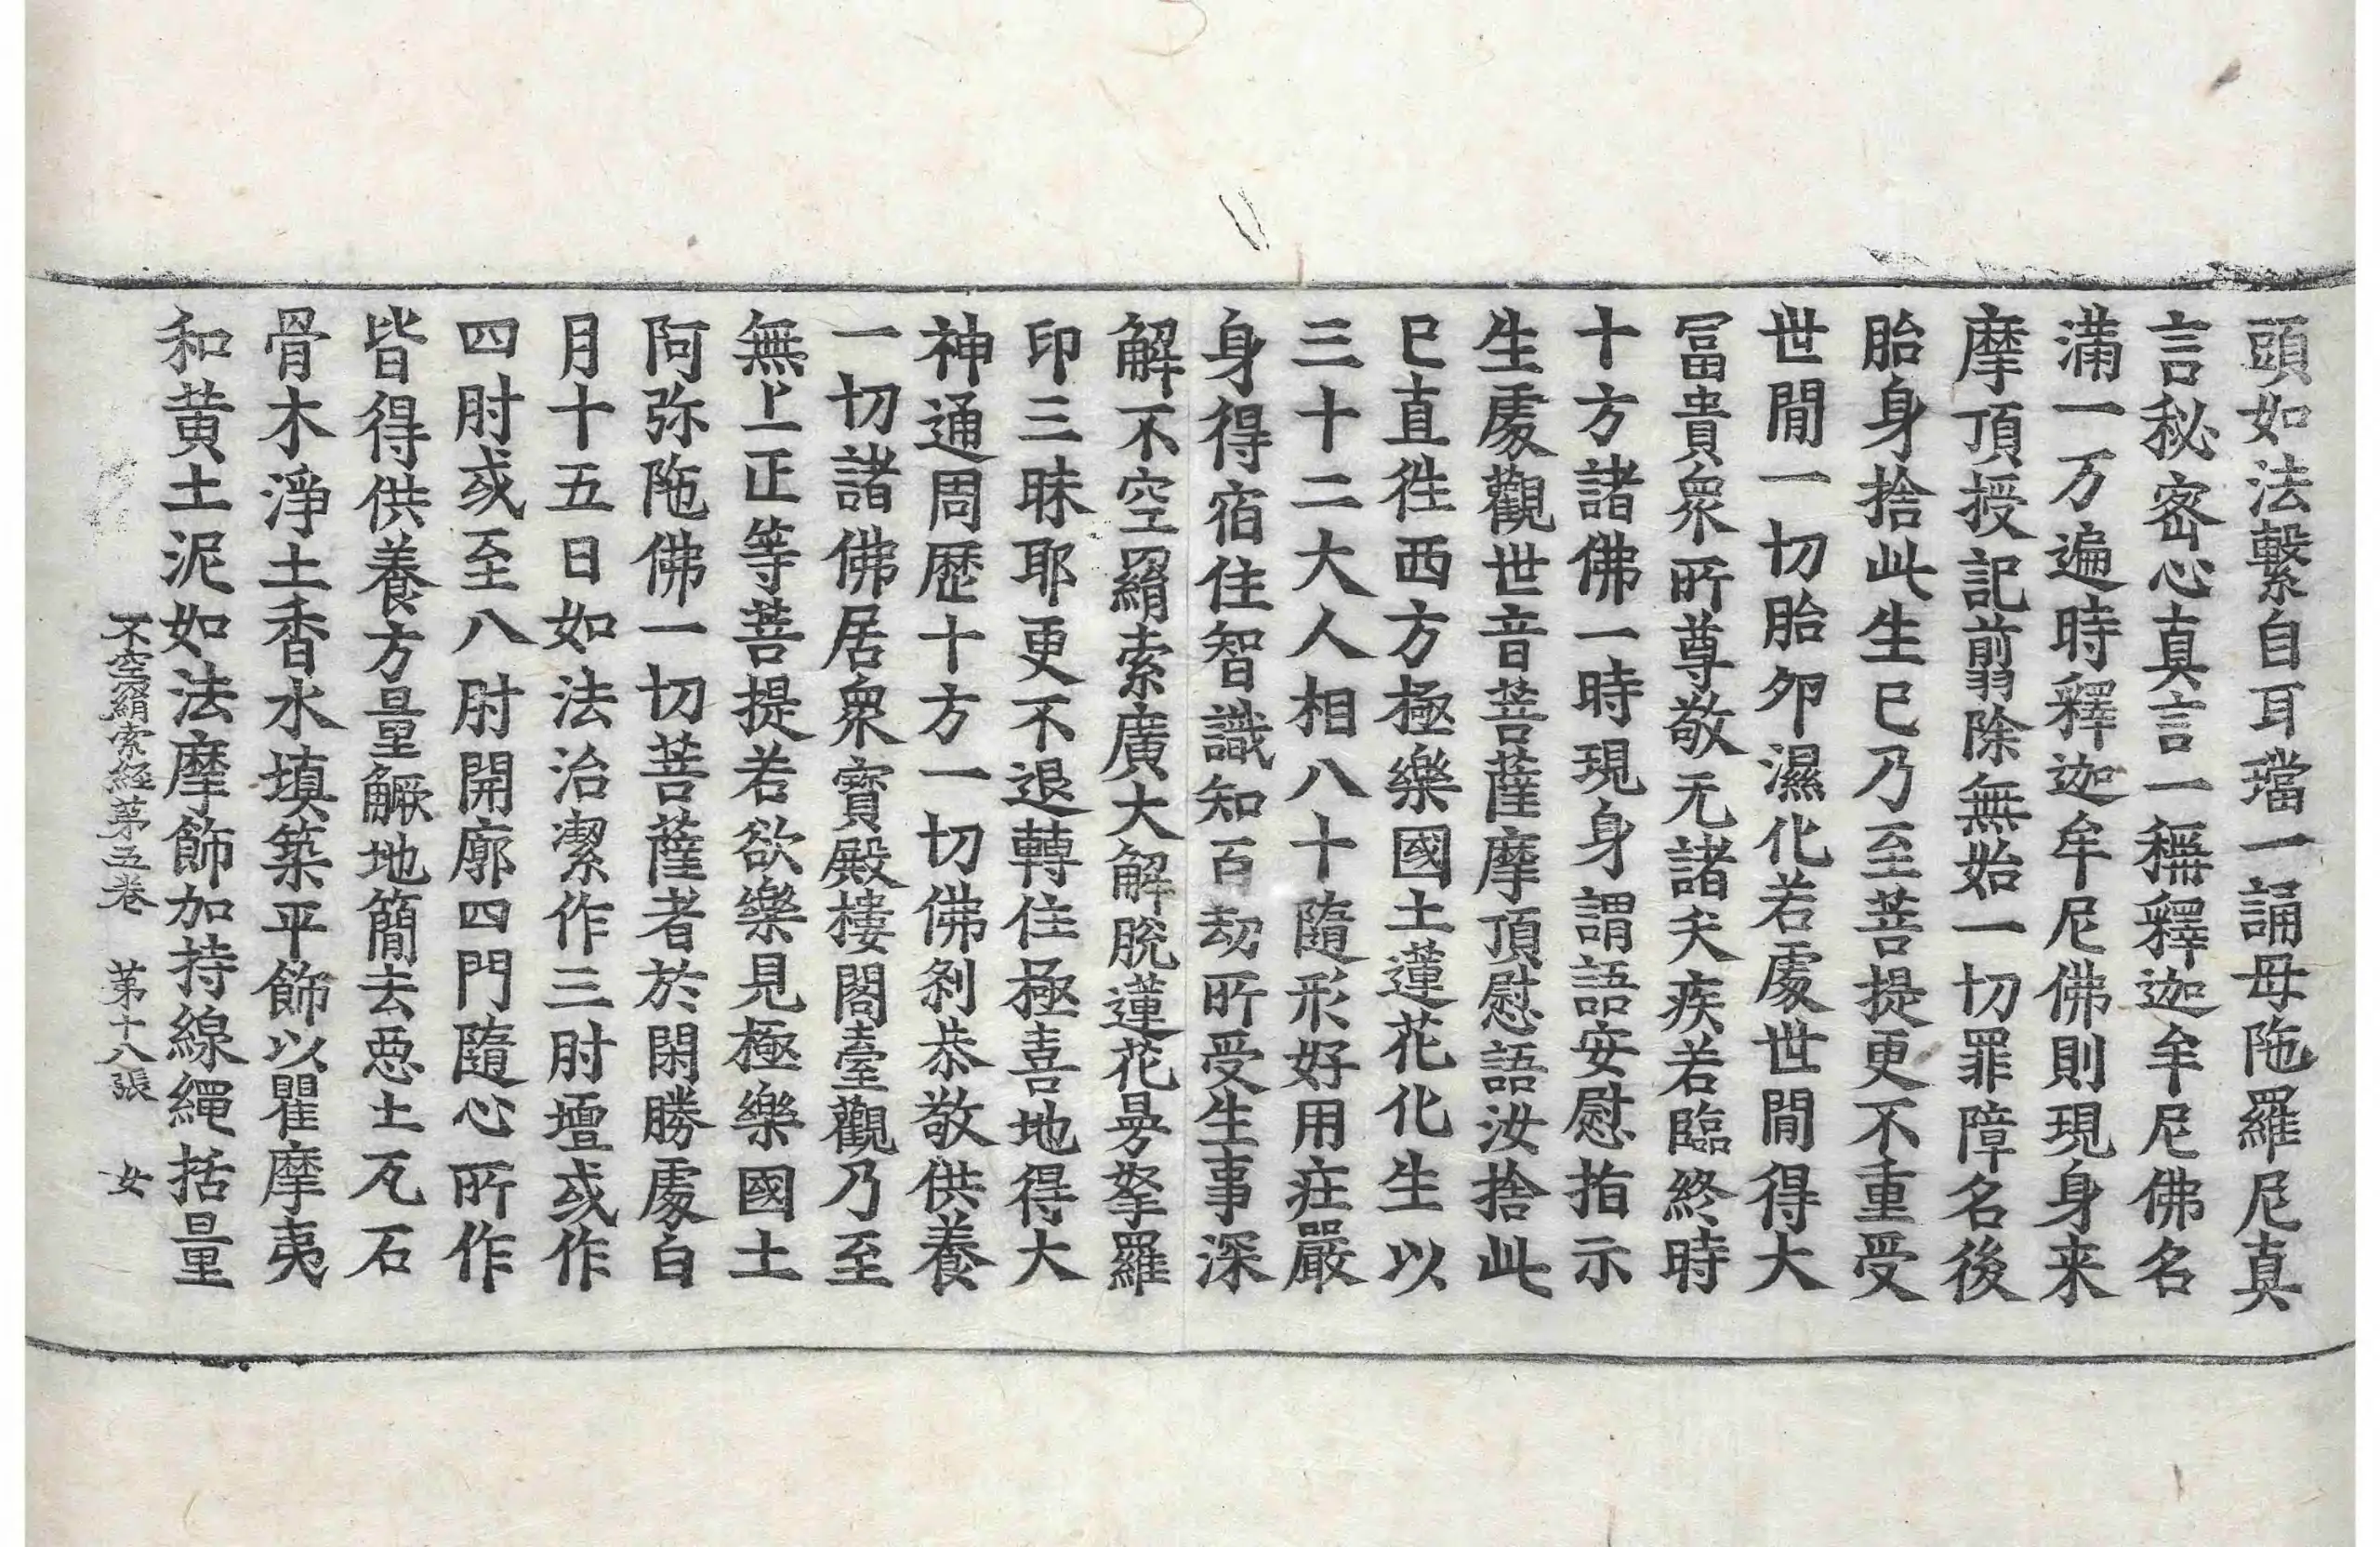 頭如法繫自耳璫一誦母陁羅尼真
言秘密心真言一稱釋迦牟尼佛名
滿一万遍時釋迦牟尼佛則現身来
摩頂授記翦除無始一切罪障名後
胎身捨此生已乃至菩提更不重受
世間一切胎卵濕化若處世間得大
冨貴衆所尊敬无諸夭疾若臨終時
十方諸佛一時現身謂語安慰指示
生處觀世音菩薩摩頂慰語汝捨此
已直徃西方極樂國土蓮花化生以
三十二大人相八十隨形好用疘嚴
身得宿住智識知百劫所受生事深
解不空羂索廣大解脫蓮花曼拏羅
印三昧耶更不退轉住極喜地得大
神通周歷十方一切佛刹恭敬供養
一切諸佛居衆寶殿樓閣臺觀乃至
無上正等菩提若欲樂見極樂國土
阿弥陁佛一切菩薩者於閑勝處白
月十五日如法治潔作三肘壇或作
四肘或至八肘開廓四門隨心所作
皆得供養方量钁地簡去惡土瓦石
骨木淨土香水填築平飾以瞿摩夷
和黃土泥如法摩飾加持線繩括量
不空羂索經第五卷　第十八張　女